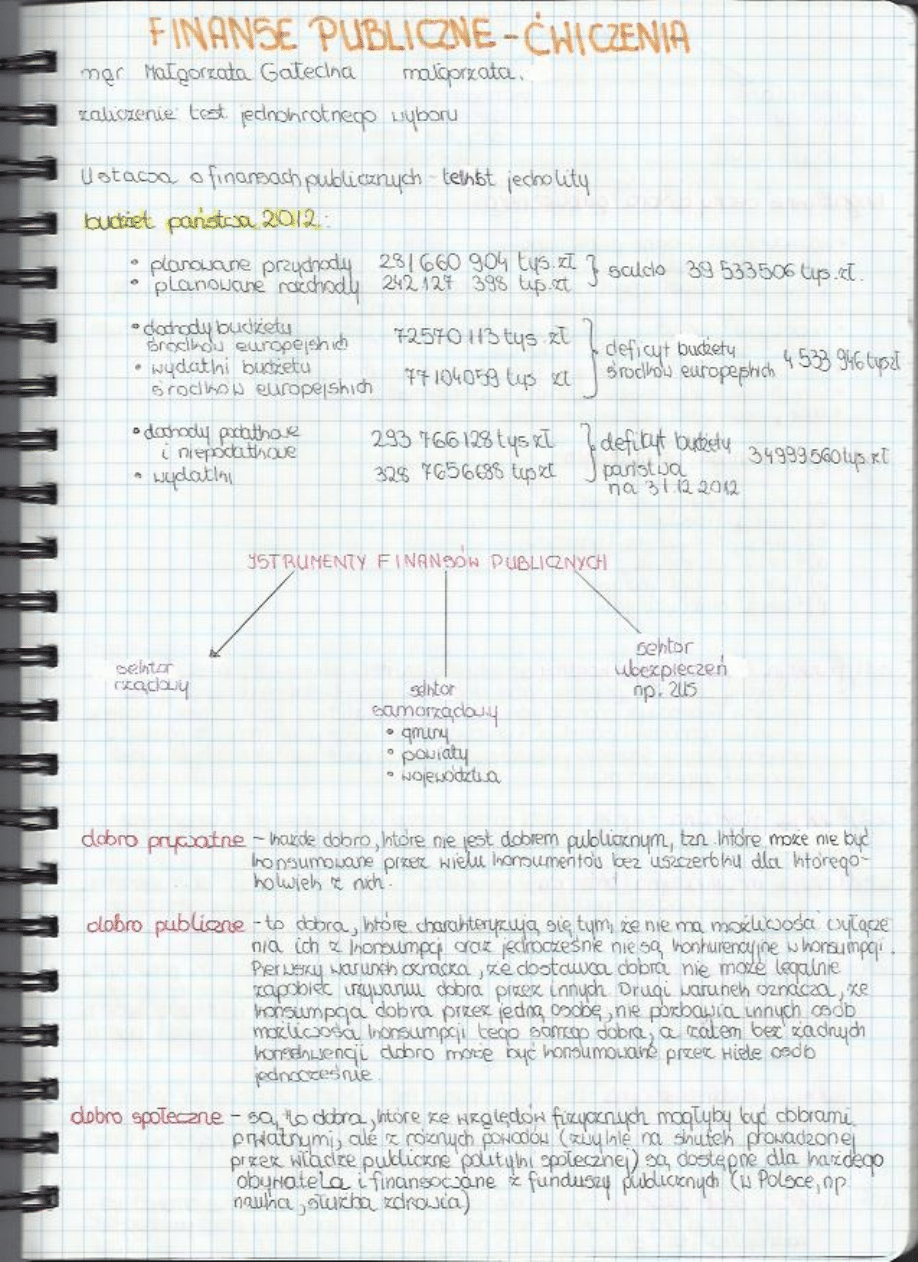 FINANSE PUBLICZNE - ĆWICZENIA
mgr Małgorzata Gałecka małgorzata.
zaliczenie: test jednokrotnego wyboru
Ustawa o finansach publicznych - tekst jednolity
budżet państwa 2012:
• planowane przychody 281 660 904 tys. zł } saldo 39 533 506 tys. zł.
• planowane rozchody 242 127 398 tys. zł
• dochody budżetu
środków europejskich 72570 113 tys. zł
• wydatki budżetu
środków europejskich 77104059 tys zł
} deficyt budżetu
środków europejskich 4 533 946 tys zł
• dochody podatkowe
i niepodatkowe 293 766 128 tys zł
• wydatki 328 7656688 tys zł
} deficyt budżetu
państwa
na 31.12.2012
34999560 tys. zł
YSTRUMENTY FINANSÓW PUBLICZNYCH
sektor
rządowy
sektor
samorządowy
• gminy
• powiaty
• województwa
sektor
ubezpieczeń
np. ZUS
dobro prywatne - każde dobro, które nie jest dobrem publicznym, tzn. które może nie być
konsumowane przez wielu konsumentów bez uszczerbku dla którego-
kolwiek z nich.
dobro publiczne - to dobra, które charakteryzują się tym, że nie ma możliwości wyłącze
nia ich z konsumpcji oraz jednocześnie nie są konkurencyjne w konsumpcji.
Pierwszy warunek oznacza, że dostawca dobra nie może legalnie
zapobiec używaniu dobra przez innych. Drugi warunek oznacza, że
konsumpcja dobra przez jedną osobę, nie pozbawia innych osób
możliwości konsumpcji tego samego dobra, a zatem bez żadnych
konsekwencji dobro może być konsumowane przez wiele osób
jednocześnie.
dobro społeczne - są to dobra, które ze względów fizycznych mogłyby być dobrami
prywatnymi, ale z różnych powodów (zwykle na skutek prowadzonej
przez władze publiczne polityki społecznej) są dostępne dla każdego
obywatela i finansowane z funduszy publicznych (w Polsce, np
nauka, służba zdrowia)